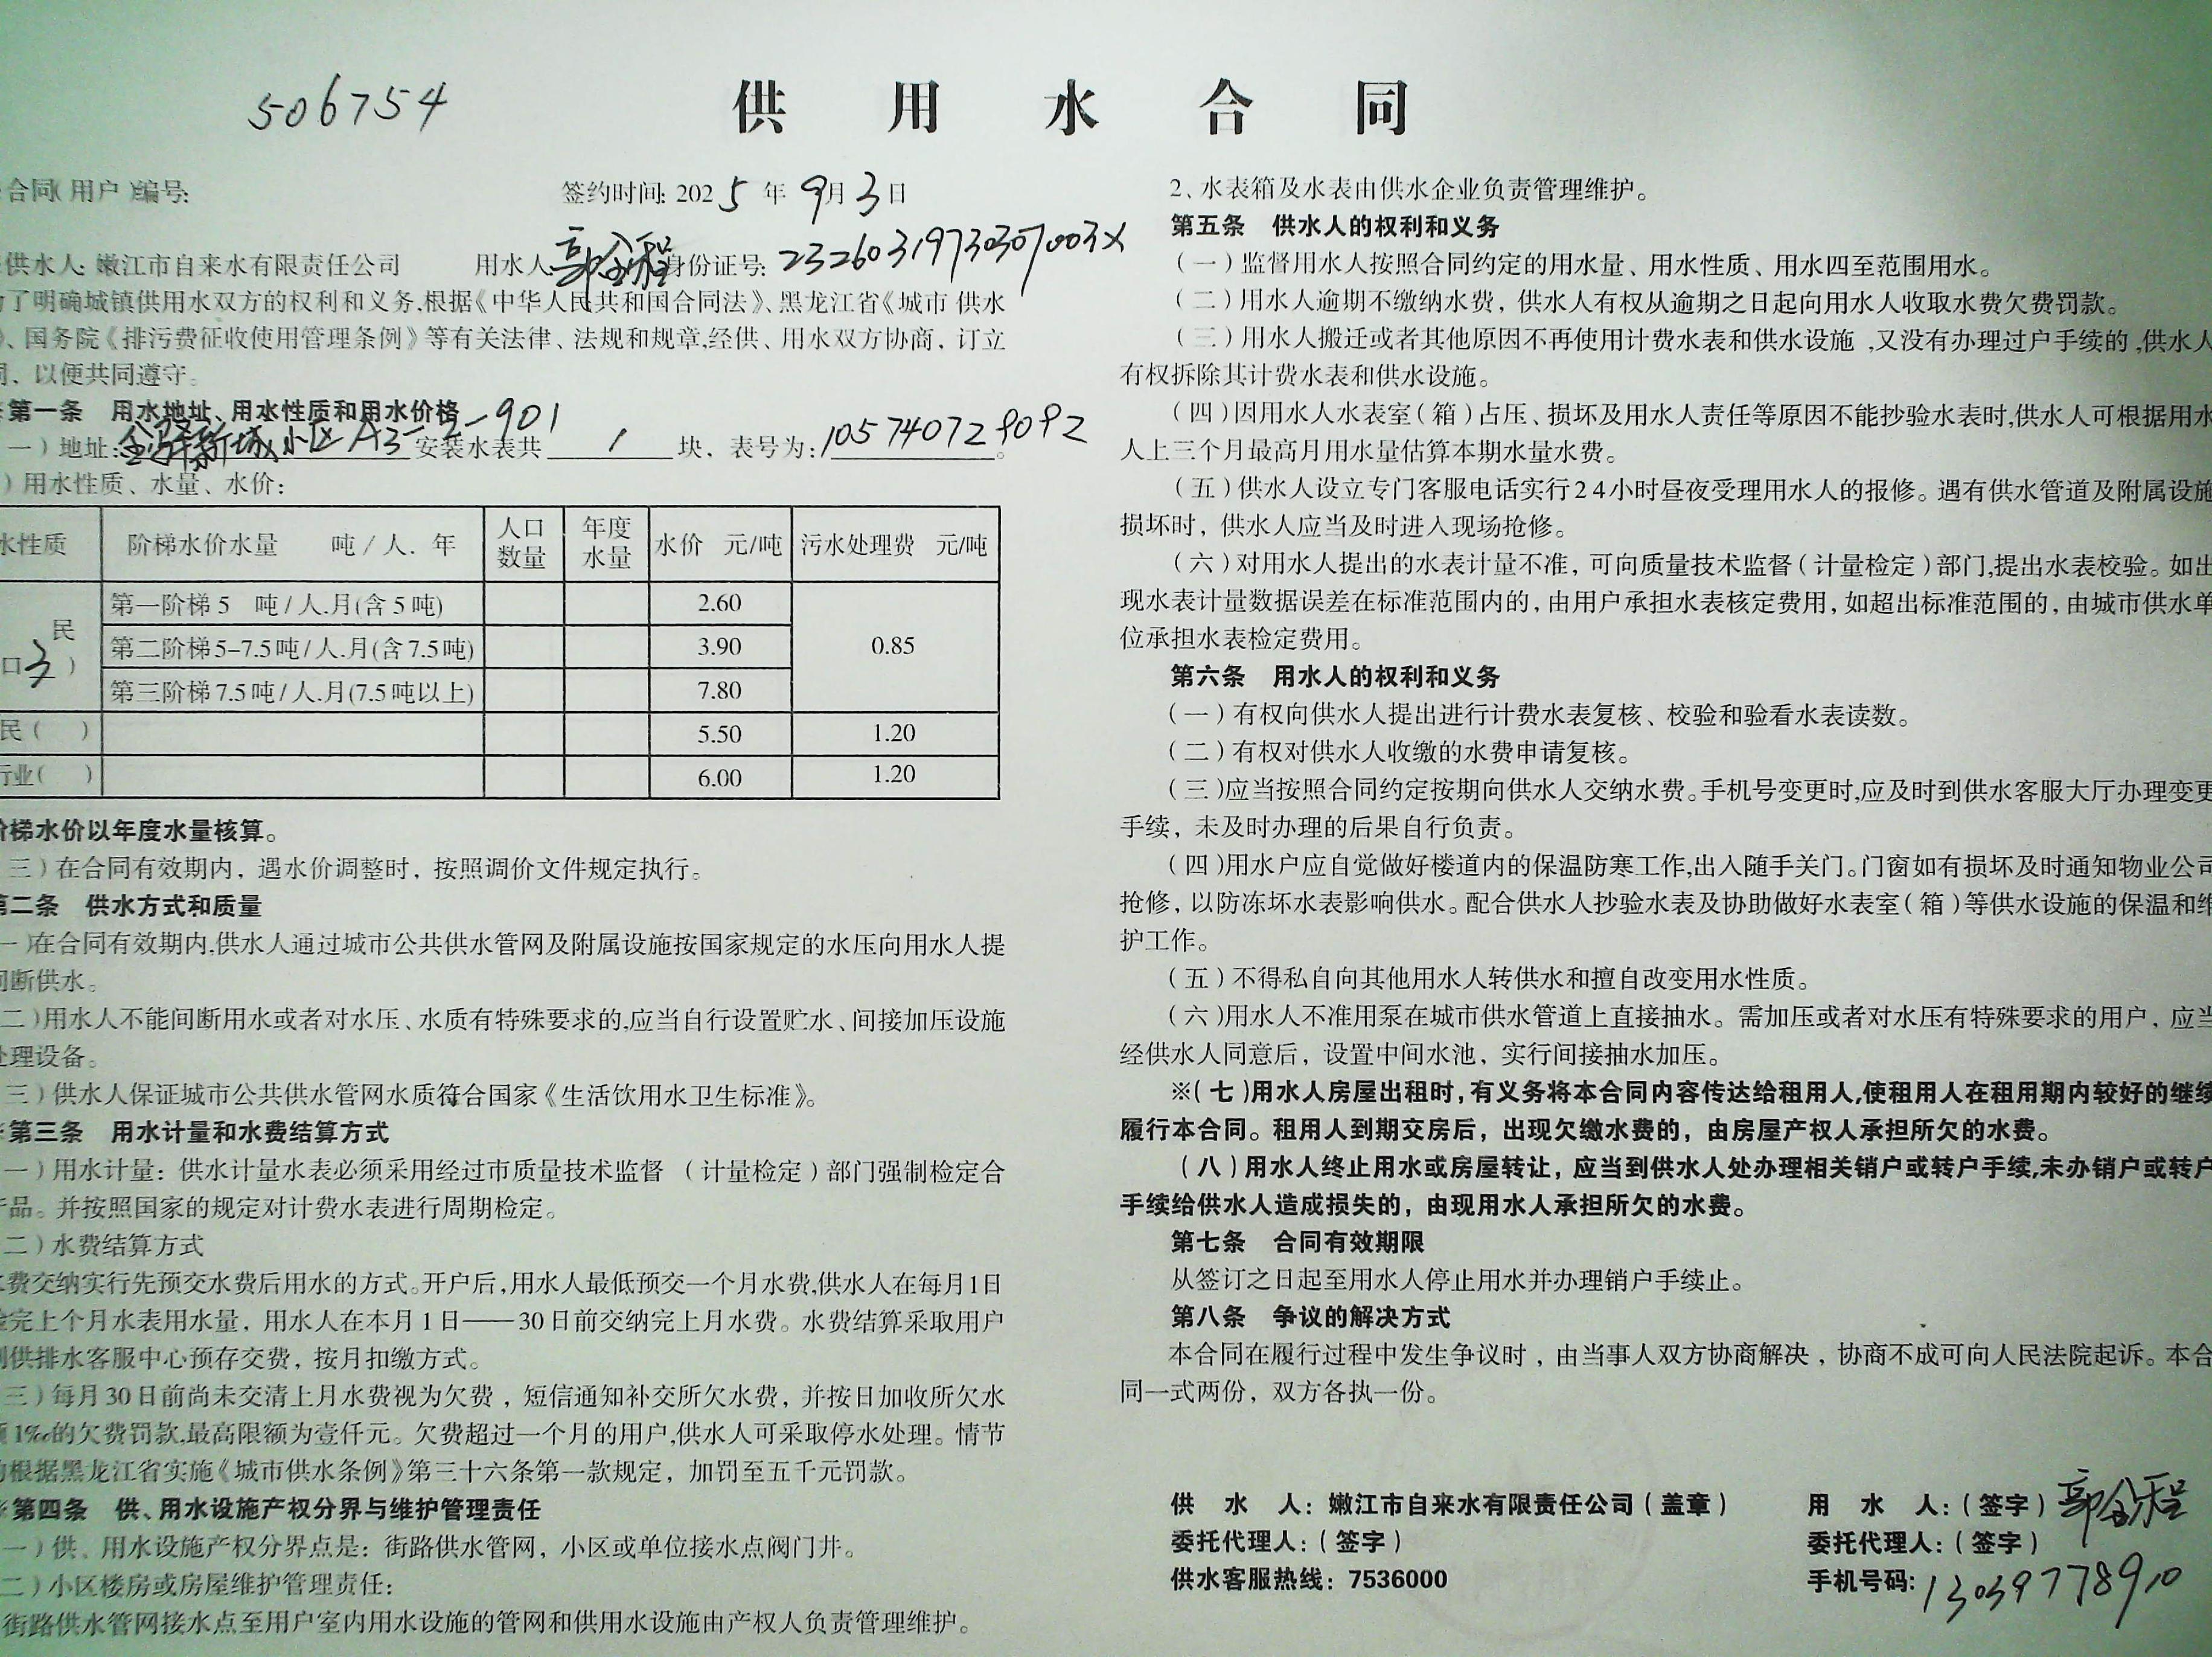 506754
供用水合同
合同(用户)编号:
签约时间: 2025 年 9月 3日
供水人: 嫩江市自来水有限责任公司 用水人: 郭全程 身份证号:
了明确城镇供用水双方的权利和义务,根据《中华人民共和国合同法》、黑龙江省《城市 供水
》、国务院《排污费征收使用管理条例》等有关法律、法规和规章,经供、用水双方协商，订立
，以便共同遵守。
第一条 用水地址、用水性质和用水价格
一）地址: 新城小区A3-2-901 安装水表共 1 块，表号为: 105740729092。
）用水性质、水量、水价：
水性质 阶梯水价水量 吨/人.年 人口数量 年度水量 水价 元/吨 污水处理费 元/吨
民
口3）
第一阶梯5 吨/人.月(含5吨) 2.60 0.85
第二阶梯5-7.5吨/人.月(含7.5吨) 3.90
第三阶梯7.5吨/人.月(7.5吨以上) 7.80
民( ) 5.50 1.20
行业( ) 6.00 1.20
阶梯水价以年度水量核算。
三）在合同有效期内，遇水价调整时，按照调价文件规定执行。
第二条 供水方式和质量
一)在合同有效期内,供水人通过城市公共供水管网及附属设施按国家规定的水压向用水人提
间断供水。
二)用水人不能间断用水或者对水压、水质有特殊要求的,应当自行设置贮水、间接加压设施
处理设备。
三）供水人保证城市公共供水管网水质符合国家《生活饮用水卫生标准》。
第三条 用水计量和水费结算方式
一）用水计量：供水计量水表必须采用经过市质量技术监督 （计量检定）部门强制检定合
产品。并按照国家的规定对计费水表进行周期检定。
二）水费结算方式
费交纳实行先预交水费后用水的方式。开户后,用水人最低预交一个月水费,供水人在每月1日
完上个月水表用水量，用水人在本月1日——30日前交纳完上月水费。水费结算采取用户
到供排水客服中心预存交费，按月扣缴方式。
三）每月30日前尚未交清上月水费视为欠费，短信通知补交所欠水费，并按日加收所欠水
1‰的欠费罚款,最高限额为壹仟元。欠费超过一个月的用户,供水人可采取停水处理。情节
根据黑龙江省实施《城市供水条例》第三十六条第一款规定，加罚至五千元罚款。
第四条 供、用水设施产权分界与维护管理责任
一）供、用水设施产权分界点是：街路供水管网，小区或单位接水点阀门井。
二）小区楼房或房屋维护管理责任：
街路供水管网接水点至用户室内用水设施的管网和供用水设施由产权人负责管理维护。
2、水表箱及水表由供水企业负责管理维护。
第五条 供水人的权利和义务
（一）监督用水人按照合同约定的用水量、用水性质、用水四至范围用水。
（二）用水人逾期不缴纳水费，供水人有权从逾期之日起向用水人收取水费欠费罚款。
（三）用水人搬迁或者其他原因不再使用计费水表和供水设施 ,又没有办理过户手续的 ,供水人
有权拆除其计费水表和供水设施。
（四）因用水人水表室（箱）占压、损坏及用水人责任等原因不能抄验水表时,供水人可根据用水
人上三个月最高月用水量估算本期水量水费。
（五）供水人设立专门客服电话实行24小时昼夜受理用水人的报修。遇有供水管道及附属设施
损坏时，供水人应当及时进入现场抢修。
（六）对用水人提出的水表计量不准，可向质量技术监督（计量检定）部门,提出水表校验。如出
现水表计量数据误差在标准范围内的，由用户承担水表核定费用，如超出标准范围的，由城市供水单
位承担水表检定费用。
第六条 用水人的权利和义务
（一）有权向供水人提出进行计费水表复核、校验和验看水表读数。
（二）有权对供水人收缴的水费申请复核。
（三)应当按照合同约定按期向供水人交纳水费。手机号变更时,应及时到供水客服大厅办理变更
手续，未及时办理的后果自行负责。
（四)用水户应自觉做好楼道内的保温防寒工作,出入随手关门。门窗如有损坏及时通知物业公司
抢修，以防冻坏水表影响供水。配合供水人抄验水表及协助做好水表室（箱）等供水设施的保温和维
护工作。
（五）不得私自向其他用水人转供水和擅自改变用水性质。
（六)用水人不准用泵在城市供水管道上直接抽水。需加压或者对水压有特殊要求的用户，应当
经供水人同意后，设置中间水池，实行间接抽水加压。
※（七)用水人房屋出租时,有义务将本合同内容传达给租用人,使租用人在租用期内较好的继续
履行本合同。租用人到期交房后，出现欠缴水费的，由房屋产权人承担所欠的水费。
（八）用水人终止用水或房屋转让，应当到供水人处办理相关销户或转户手续,未办销户或转户
手续给供水人造成损失的，由现用水人承担所欠的水费。
第七条 合同有效期限
从签订之日起至用水人停止用水并办理销户手续止。
第八条 争议的解决方式
本合同在履行过程中发生争议时，由当事人双方协商解决，协商不成可向人民法院起诉。本合
同一式两份，双方各执一份。
供 水 人：嫩江市自来水有限责任公司（盖章） 用 水 人：（签字）郭全程
委托代理人：（签字） 委托代理人：（签字）
供水客服热线：7536000 手机号码: 13039778910